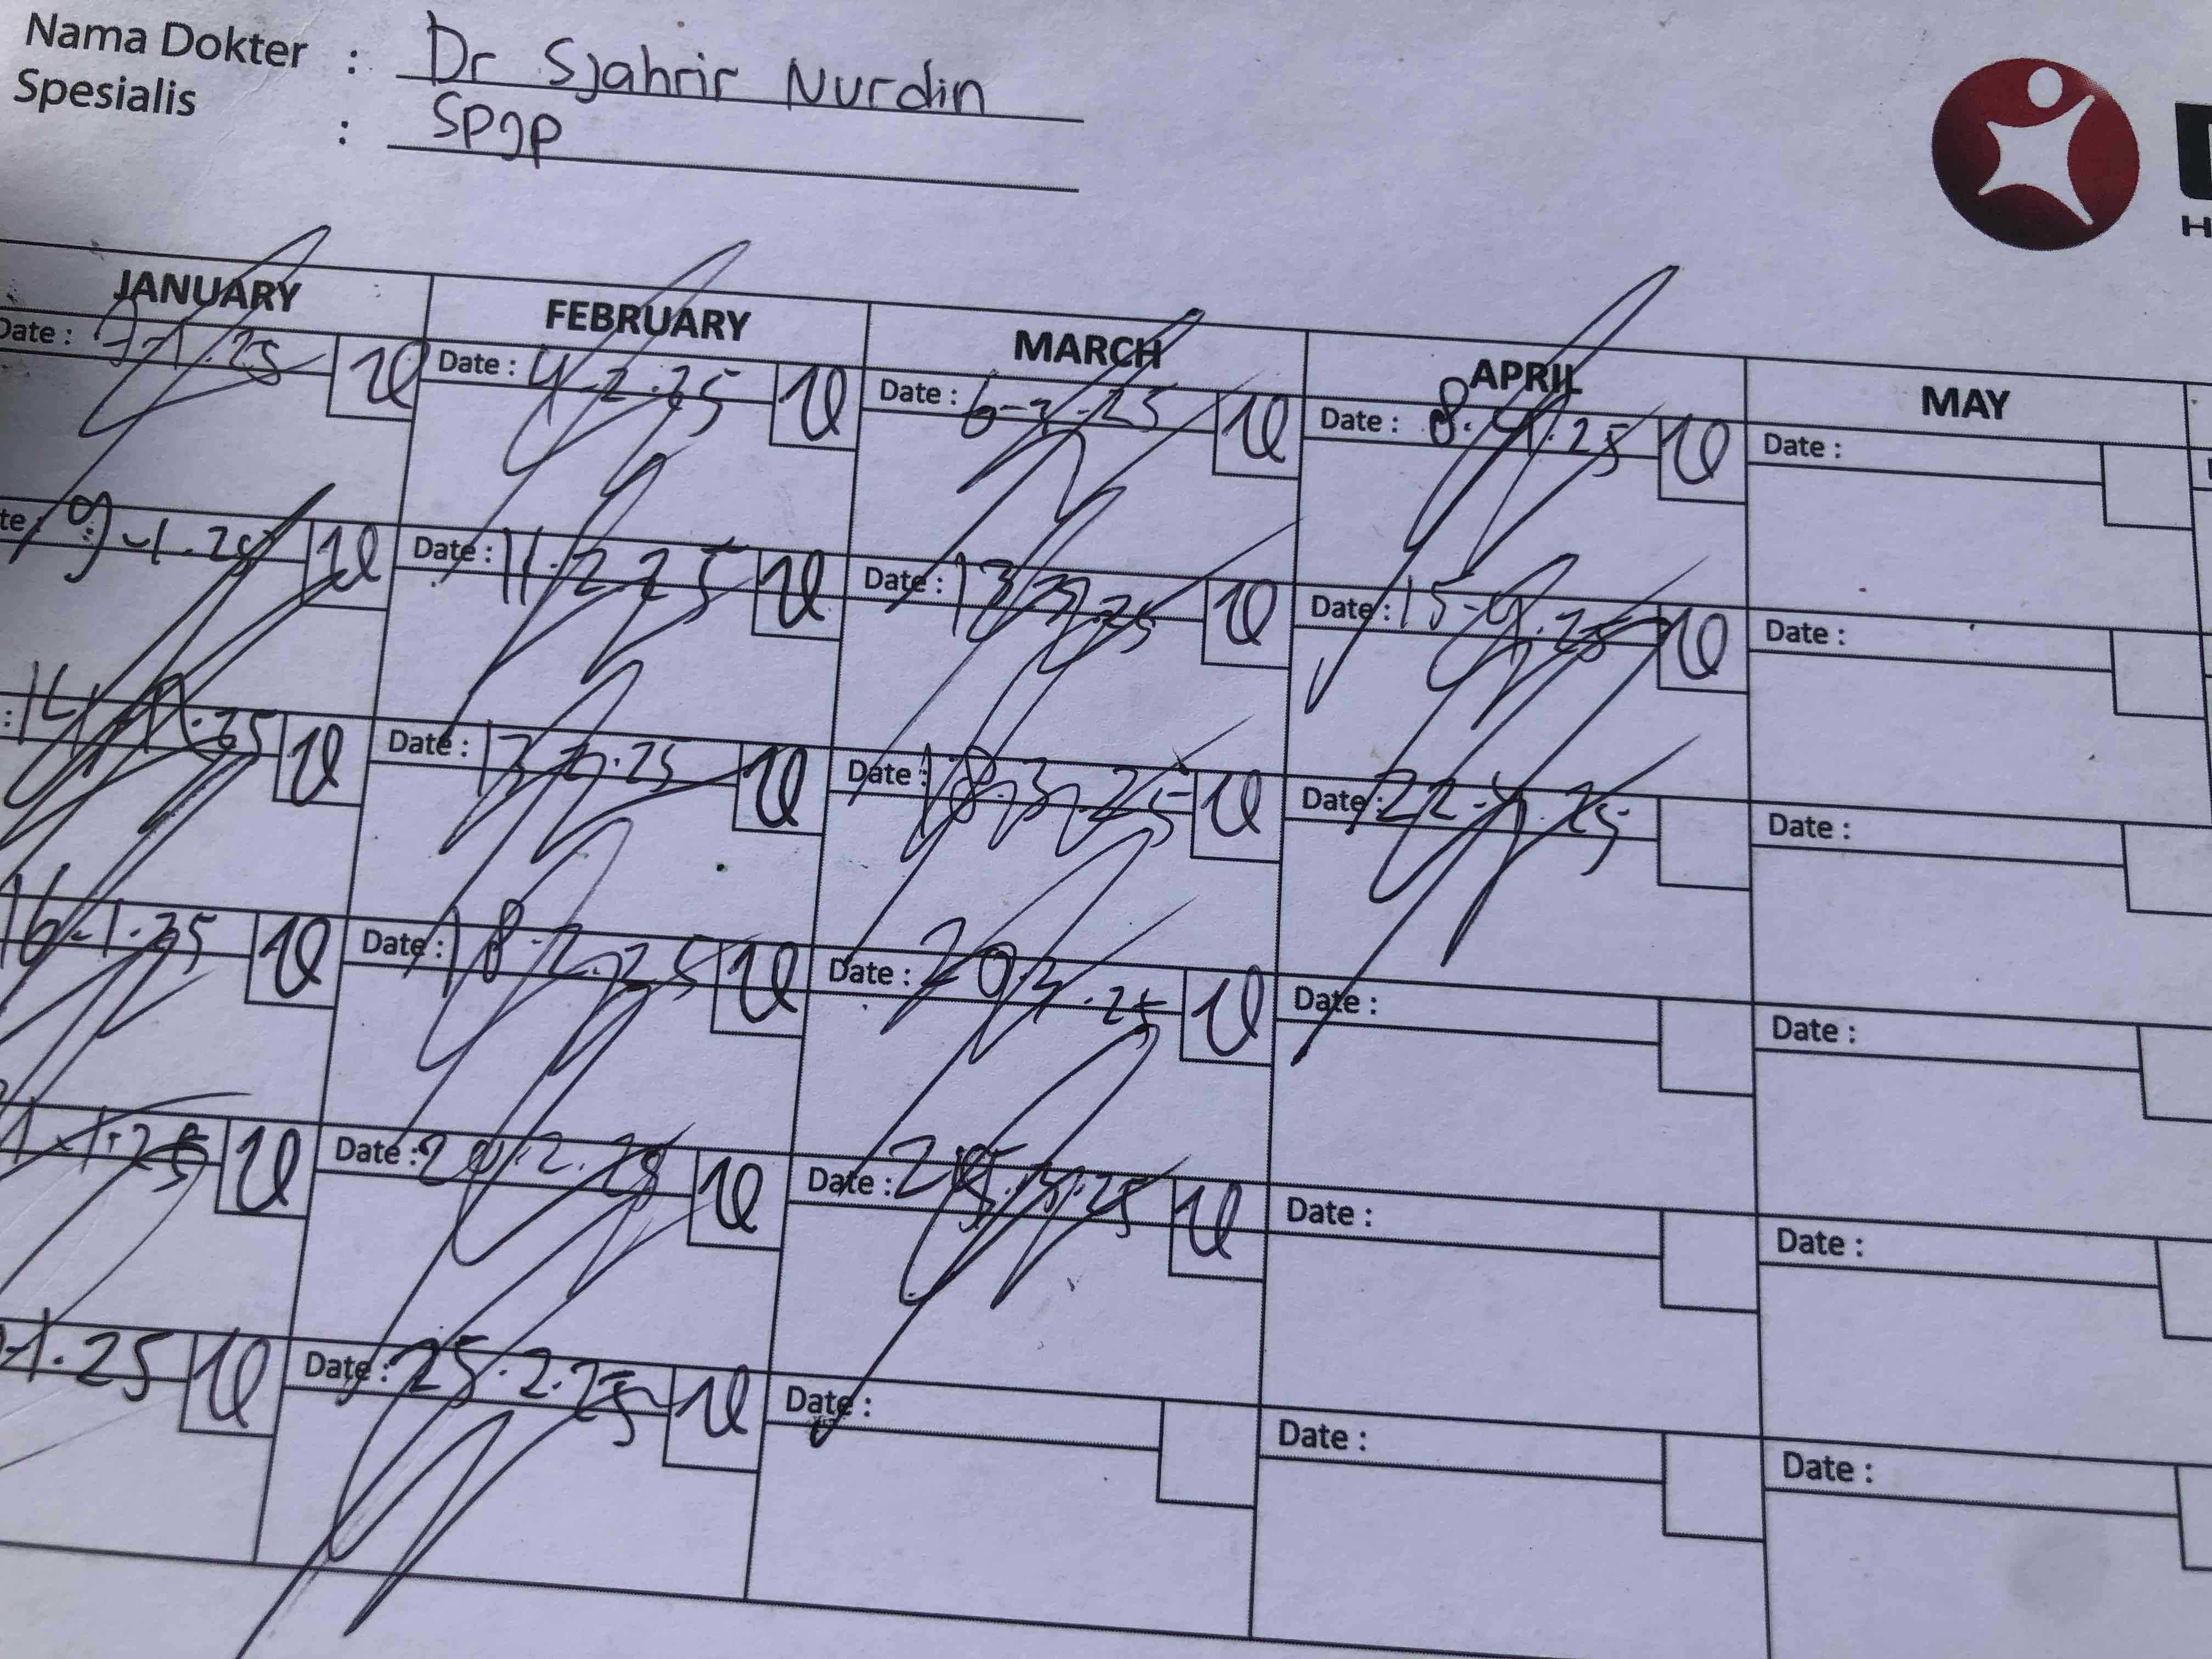 Nama Dokter : Dr Sjahrir Nurdin
Spesialis : SPJP
JANUARY FEBRUARY MARCH APRIL MAY
Date : 7-1.25 Date : 4-2.25 Date : 6-3-25 Date : 8.4.25 Date :
9-1.25 Date : 11.2.25 Date : 13.3.25 Date : 15-4.25 Date :
: 14.1.25 Date : 13.2.25 Date : 18.3.25 Date : 22.4.25 Date :
16-1.25 Date : 18-2.25 Date : 20.3.25 Date : Date :
1.25 Date : 20.2.25 Date : 25.3.25 Date : Date :
-1.25 Date : 25.2.25 Date : Date : Date :